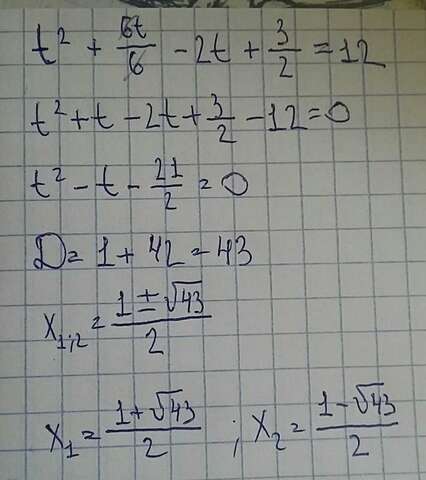 t² + 6t/6 - 2t + 3/2 = 12
t² + t - 2t + 3/2 - 12 = 0
t² - t - 21/2 = 0
D = 1 + 42 = 43
x₁;₂ = (1 ± √43)/2
x₁ = (1 + √43)/2 ; x₂ = (1 - √43)/2